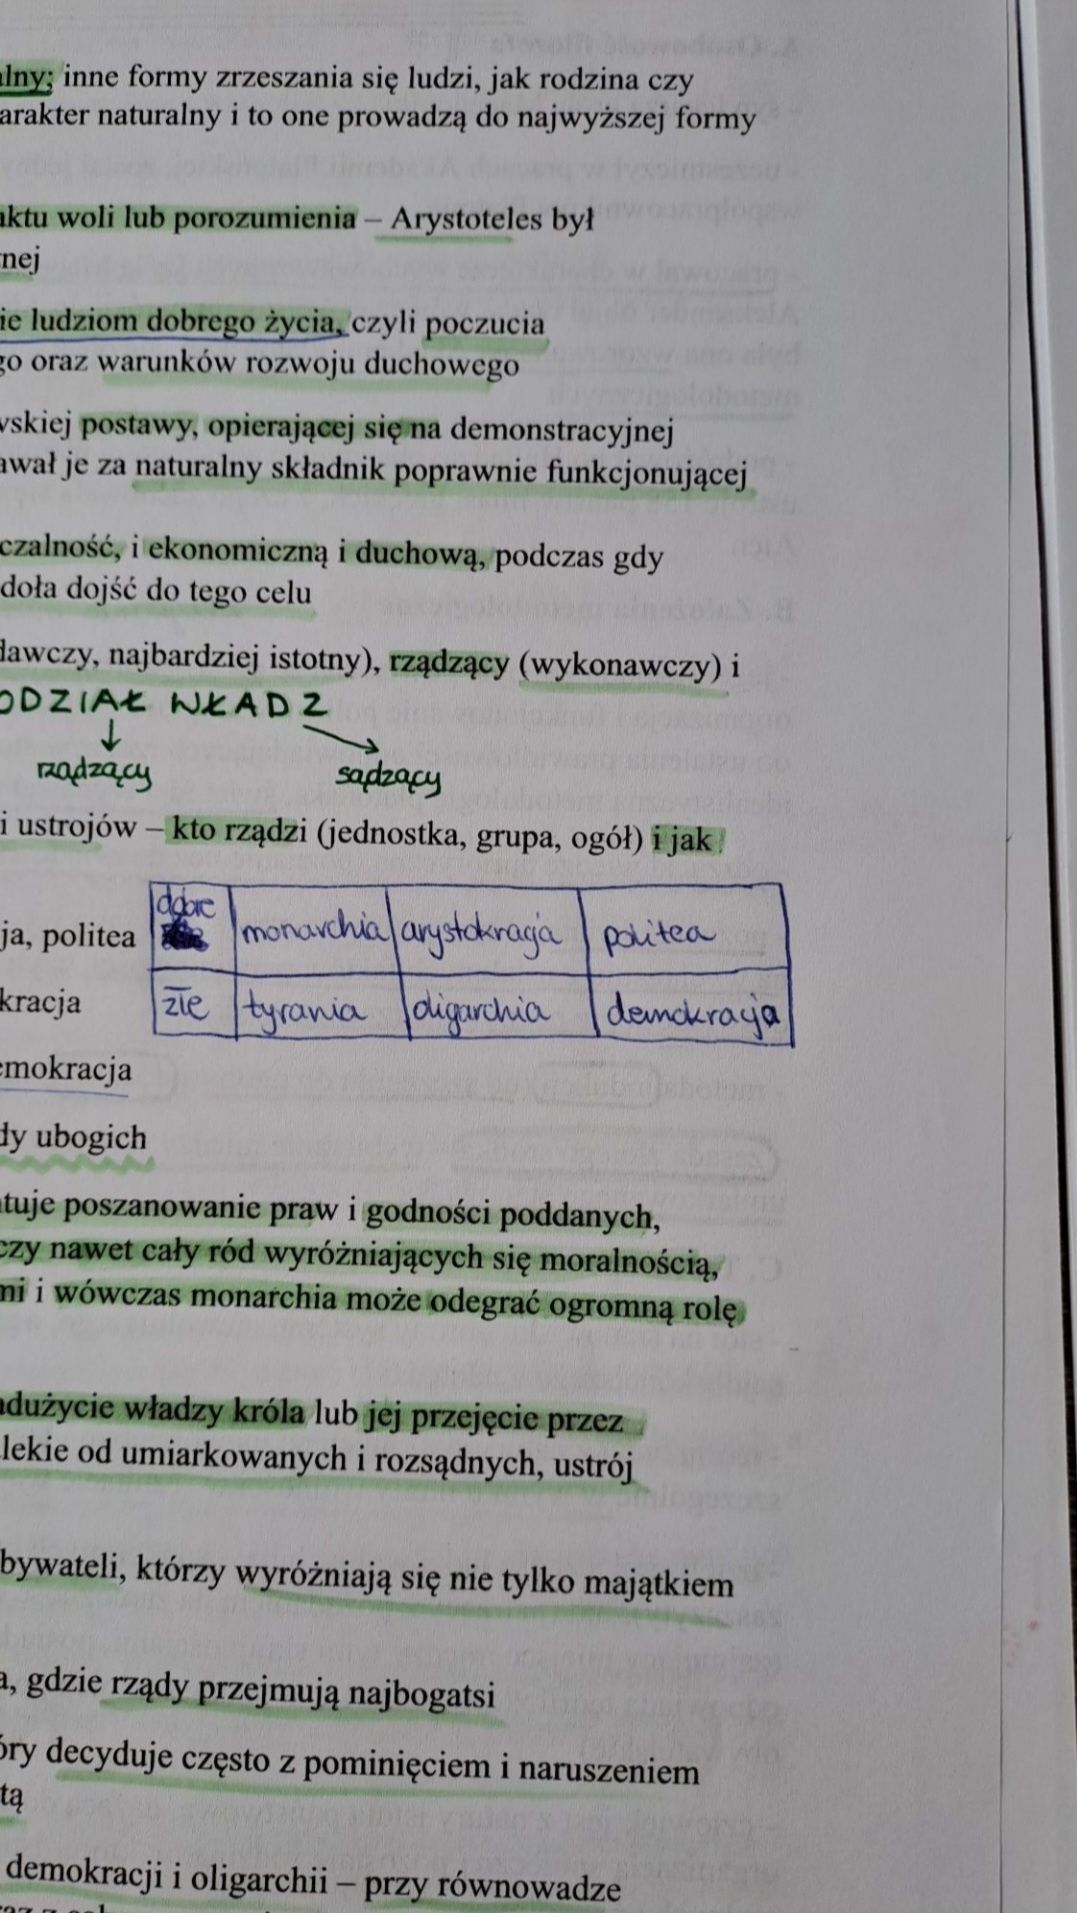 alny; inne formy zrzeszania się ludzi, jak rodzina czy
arakter naturalny i to one prowadzą do najwyższej formy
aktu woli lub porozumienia – Arystoteles był
nej
ie ludziom dobrego życia, czyli poczucia
go oraz warunków rozwoju duchowego
wskiej postawy, opierającej się na demonstracyjnej
awał je za naturalny składnik poprawnie funkcjonującej
czalność, i ekonomiczną i duchową, podczas gdy
doła dojść do tego celu
dawczy, najbardziej istotny), rządzący (wykonawczy) i
ODZIAŁ WŁADZ
rządzący sądzący
i ustrojów – kto rządzi (jednostka, grupa, ogół) i jak
ja, politea
dobre monarchia arystokracja politea
kracja
złe tyrania oligarchia demokracja
emokracja
dy ubogich
tuje poszanowanie praw i godności poddanych,
czy nawet cały ród wyróżniających się moralnością,
mi i wówczas monarchia może odegrać ogromną rolę
adużycie władzy króla lub jej przejęcie przez
lekie od umiarkowanych i rozsądnych, ustrój
bywateli, którzy wyróżniają się nie tylko majątkiem
a, gdzie rządy przejmują najbogatsi
óry decyduje często z pominięciem i naruszeniem
tą
demokracji i oligarchii – przy równowadze